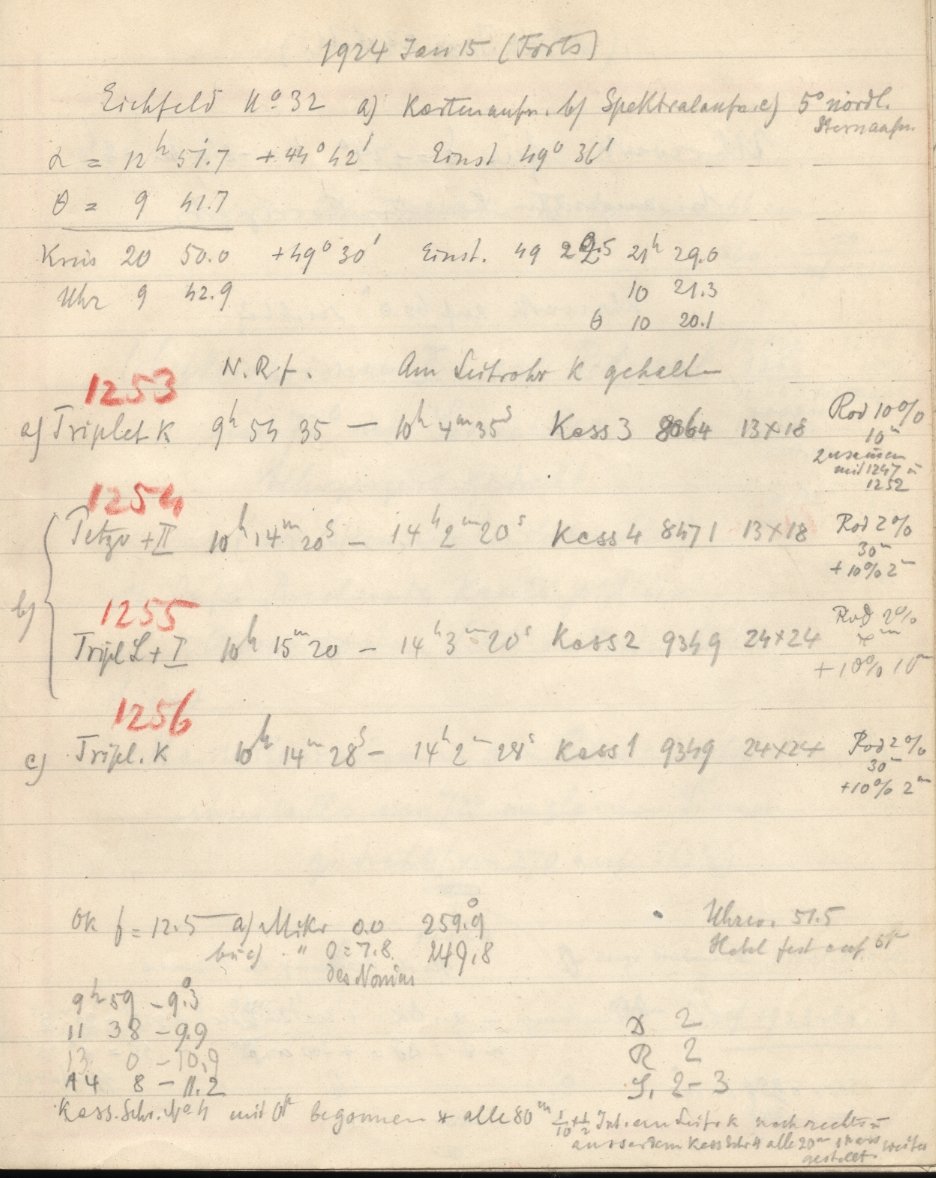 1924 Jan 15 (Forts)
Eichfeld No 32 a) Kartenaufn. b) Spektralaufn. c) 5° nördl.
Sternaufn.
α = 12h 51.7 +44° 42' Einst 49° 36'
θ = 9 41.7
Kreis 20 50.0 +49° 30' Einst. 49 21h 29.0
Uhr 9 42.9 10 21.3
θ 10 20.1
N.Rf. Am Leitrohr K gehalten
1253
a) Triplet K 9h 54 35 — 10h 4m 35s Kass 3 8064 13×18 Rod 10%
10m
zusammen
mit 1247 u
1252
1254
b) Petzv + II 10h 14m 20s — 14h 2m 20s Kass 4 8471 13×18 Rod 2%
30m
+10% 2m
1255
Tripl L + I 10h 15m 20 — 14h 3m 20s Kass 2 9349 24×24 Rod 2%
+10% 10m
1256
c) Tripl. K 10h 14m 28s — 14h 2m 28s Kass 1 9349 24×24 Rod 2%
30m
+10% 2m
Ok f = 12.5 a) Mikr 0.0 259.9 Uhrw. 51.5
b u c) " 0=7.8 249.8 Hebel fest auf
des Nonius
9h 59 – 9.3
11 38 – 9.9 D 2
13 0 – 10.9 R 2
14 8 – 11.2 S. 2–3
Kass. Schr. mit begonnen + alle 80m 1/10 + 1/2 Int. am Leitr K nach rechts u
ausserdem Kass Schr 4 alle 20m weiter
gestellt